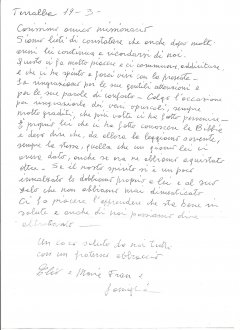 Terralba 19-3-
Carissimo amico missionario
Siamo lieti di constatare che anche dopo molti
anni lei continua a ricordarsi di noi.
Questo ci fa molto piacere e ci commuove addirittura
e che ci ha spinto a farci vivi con la presente.
La ringraziamo per le sue gentili attenzioni e
per le sue parole di conforto. Colgo l'occasione
per ringraziarla dei vari opuscoli, sempre
molto graditi, che più volte ci ha fatto pervenire
È proprio lei che ci ha fatto conoscere la Bibbia
e devo dire che da allora la leggiamo sovente,
sempre la stessa, quella che un giorno lei ci
aveva dato, anche se ora ne abbiamo acquistate
altre. Se il nostro spirito si è un poco
lo dobbiamo proprio a lei e al suo
che non abbiamo mai dimenticato
Ci fa piacere l'apprendere che sta bene in
salute e anche di noi possiamo dire
altrettanto
Un caro saluto da noi tutti
con un fraterno abbraccio
Elio e Maria Fran e
famiglia